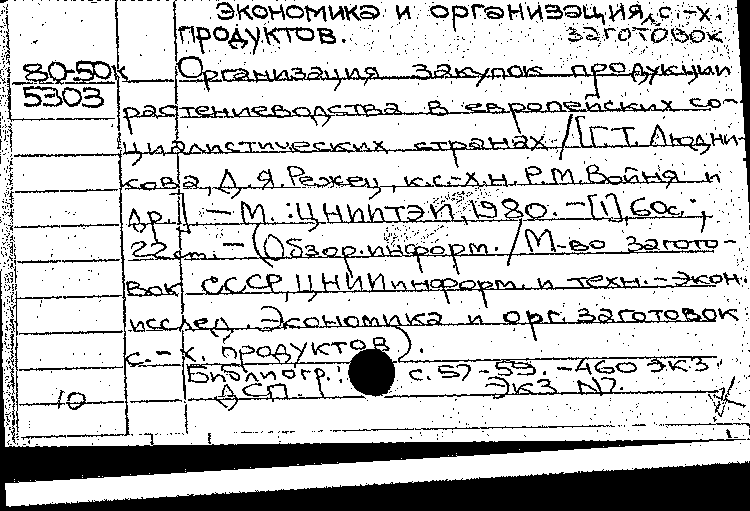 экономика и организация с.-х.
продуктов. заготовок
80-50к Организация закупок продукции
5303
растениеводства в европейских со-
циалистических странах /[Г.Т. Людни-
кова, Д.Я. Режец, к.с.-х.н. Р.М. Война и
др.] - М.: ЦНИИТЭИ, 1980. - [1], 60с.;
22 см. - (Обзор. информ. / М-во загото-
вок СССР, ЦНИИ информ. и техн.-экон.
исслед. Экономика и орг. заготовок
с.-х. продуктов).
Библиогр.: с. 57-59. - 460 экз.
10 ДСП. Экз. N7.